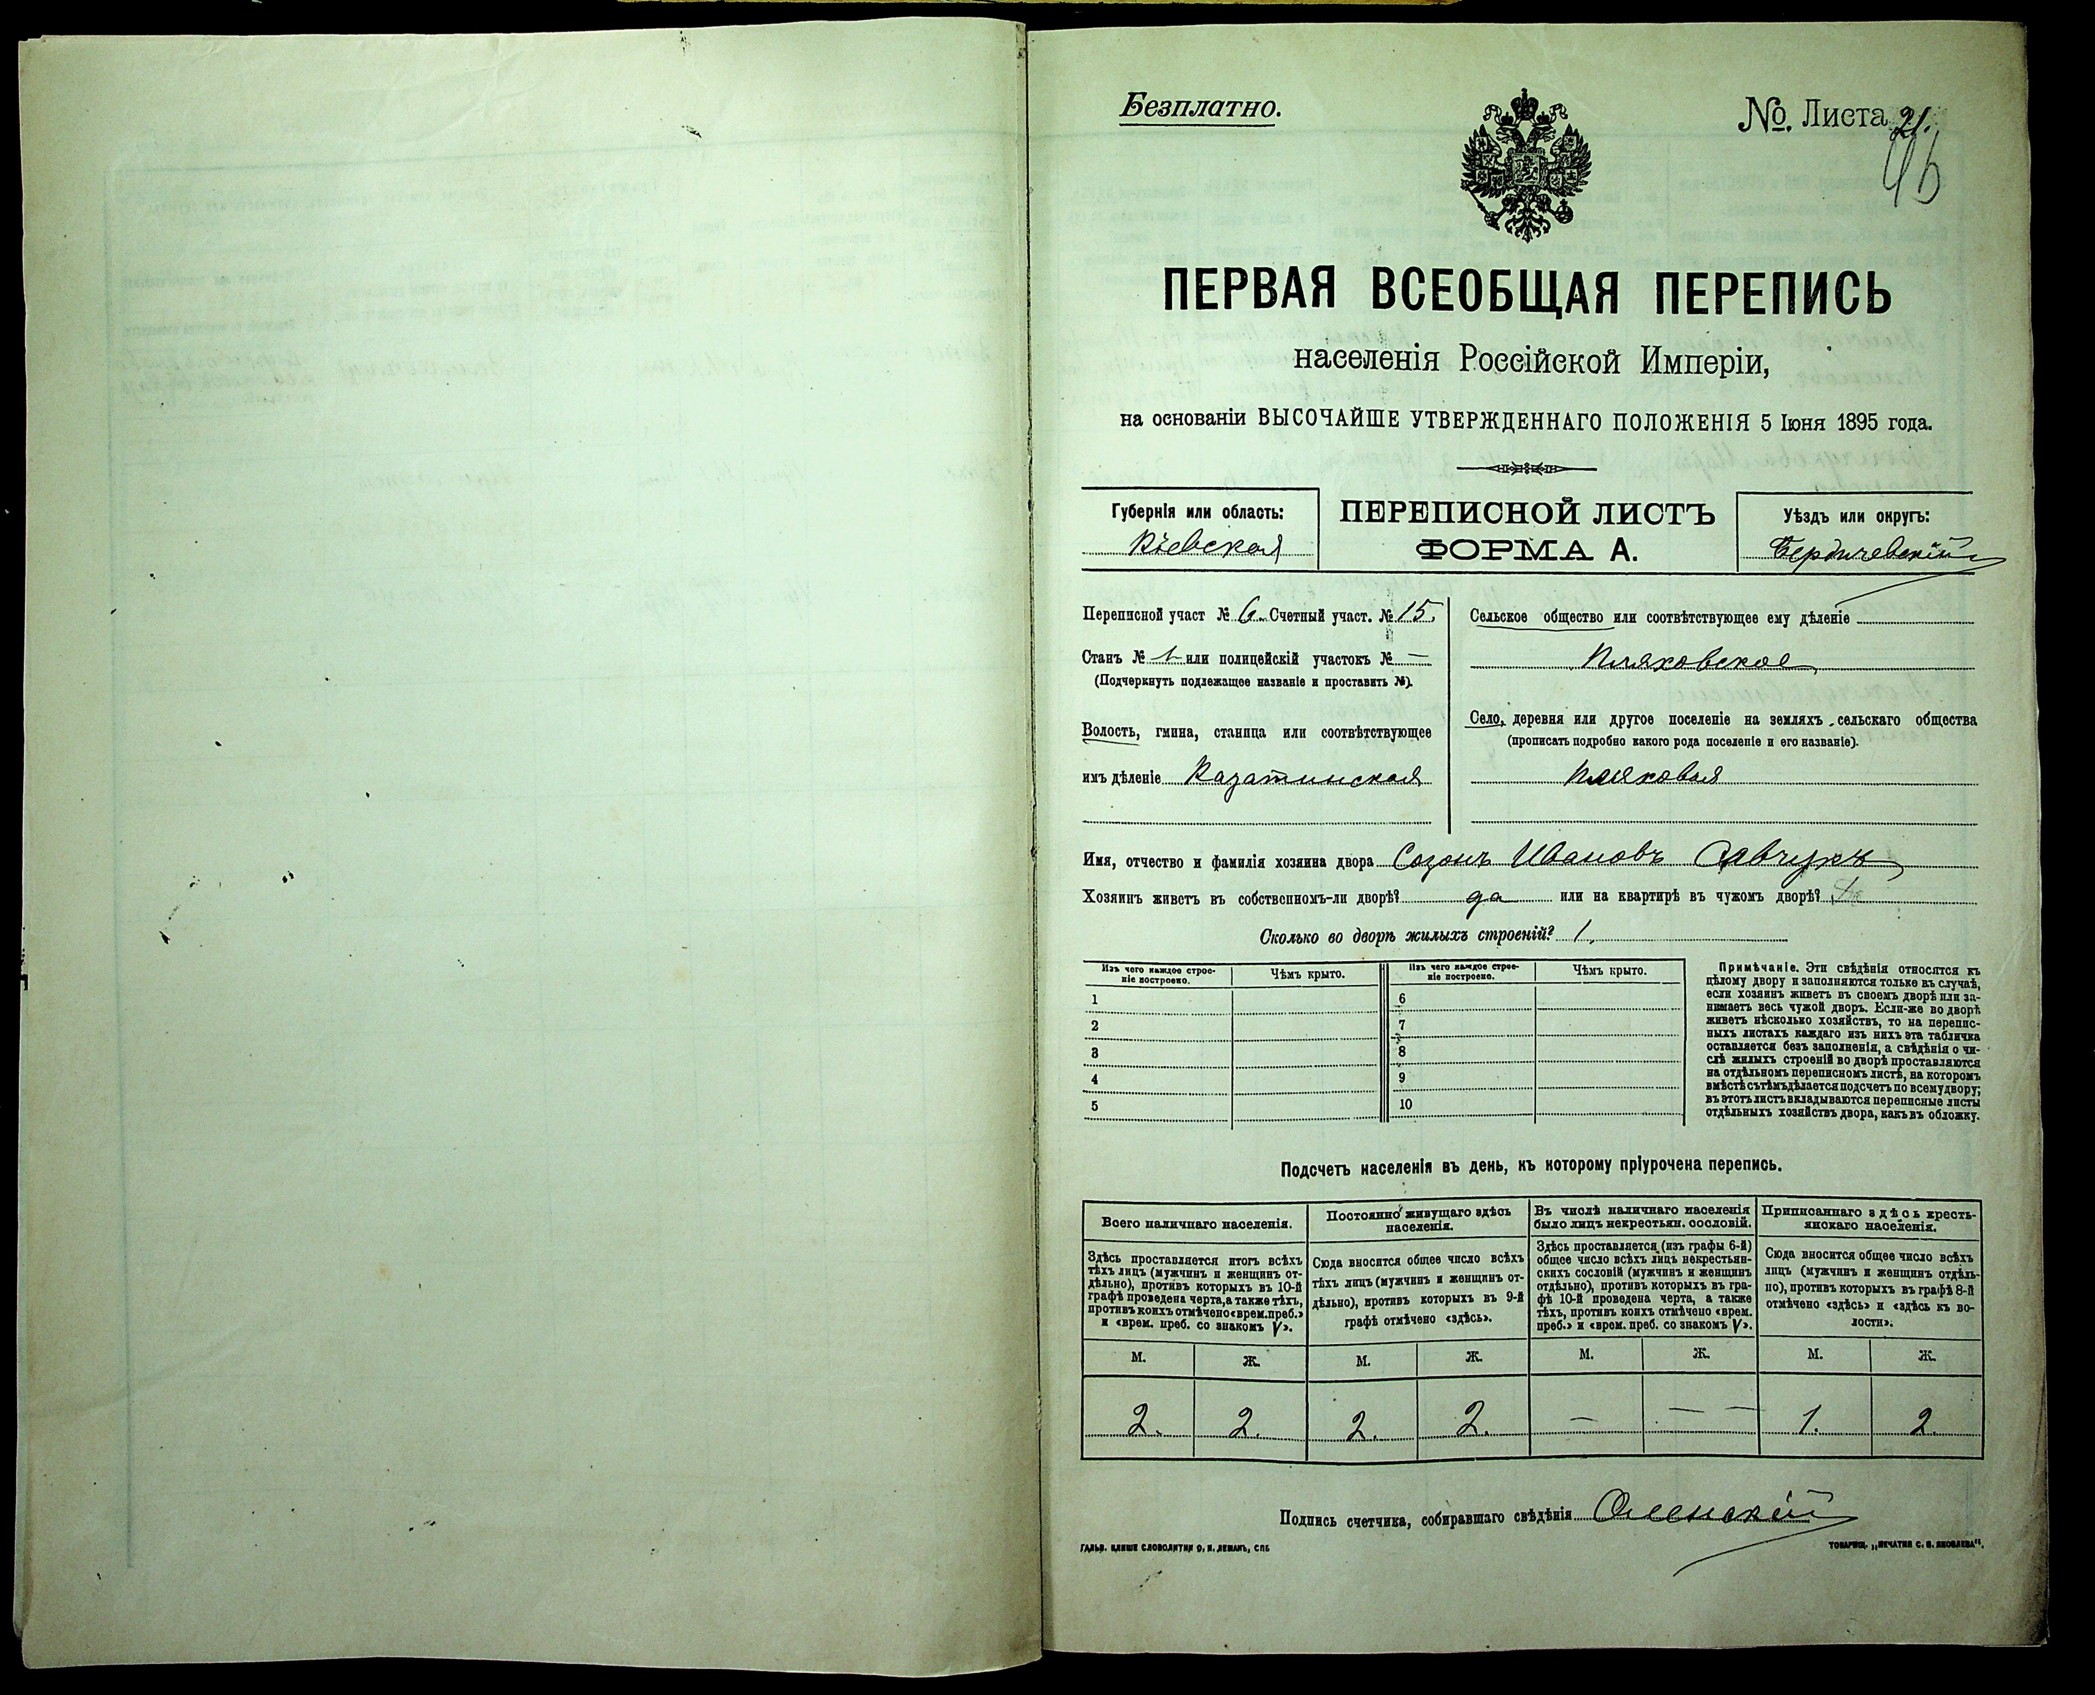 Безплатно.
No. Листа 21.
96
ПЕРВАЯ ВСЕОБЩАЯ ПЕРЕПИСЬ
населенія Россійской Имперіи,
на основаніи ВЫСОЧАЙШЕ УТВЕРЖДЕННАГО ПОЛОЖЕНІЯ 5 Іюня 1895 года.
Губернія или область:
Кіевская
ПЕРЕПИСНОЙ ЛИСТЪ
ФОРМА А.
Уѣздъ или округъ:
Бердичевскій
Переписной участ № 6. Счетный участ. № 15.
Станъ № 1 или полицейскій участокъ № —
(Подчеркнуть подлежащее названіе и проставить №).
Волость, гмина, станица или соотвѣтствующее
имъ дѣленіе Казатинская
Сельское общество или соотвѣтствующее ему дѣленіе
Пляховское
Село, деревня или другое поселеніе на земляхъ сельскаго общества
(прописать подробно какого рода поселеніе и его названіе).
Пляховая
Имя, отчество и фамилія хозяина двора Созонъ Ивановъ Савчукъ
Хозяинъ живетъ въ собственномъ-ли дворѣ? да или на квартирѣ въ чужомъ дворѣ?
Сколько во дворѣ жилыхъ строеній? 1.
Изъ чего каждое строе-
ніе построено.
Чѣмъ крыто.
Изъ чего каждое строе-
ніе построено.
Чѣмъ крыто.
1
2
3
4
5
6
7
8
9
10
Примѣчаніе. Эти свѣдѣнія относятся къ
цѣлому двору и заполняются только въ случаѣ,
если хозяинъ живетъ въ своемъ дворѣ или за-
нимаетъ весь чужой дворъ. Если-же во дворѣ
живетъ нѣсколько хозяйствъ, то на перепис-
ныхъ листахъ каждаго изъ нихъ эта табличка
оставляется безъ заполненія, а свѣдѣнія о чи-
слѣ жилыхъ строеній во дворѣ проставляются
на отдѣльномъ переписномъ листѣ, на которомъ
вмѣстѣ съ тѣмъ дѣлается подсчетъ по всему двору;
въ этотъ листъ вкладываются переписные листы
отдѣльныхъ хозяйствъ двора, какъ въ обложку.
Подсчетъ населенія въ день, къ которому пріурочена перепись.
Всего наличнаго населенія.
Постоянно живущаго здѣсь
населенія.
Въ числѣ наличнаго населенія
было лицъ некрестьян. сословій.
Приписаннаго здѣсь кресть-
янскаго населенія.
Здѣсь проставляется итогъ всѣхъ
тѣхъ лицъ (мужчинъ и женщинъ от-
дѣльно), противъ которыхъ въ 10-й
графѣ проведена черта, а также тѣхъ,
противъ коихъ отмѣчено «врем. преб.»
и «врем. преб. со знакомъ V».
Сюда вносится общее число всѣхъ
тѣхъ лицъ (мужчинъ и женщинъ от-
дѣльно), противъ которыхъ въ 9-й
графѣ отмѣчено «здѣсь».
Здѣсь проставляется (изъ графы 6-й)
общее число всѣхъ лицъ некрестьян-
скихъ сословій (мужчинъ и женщинъ
отдѣльно), противъ которыхъ въ гра-
фѣ 10-й проведена черта, а также
тѣхъ, противъ коихъ отмѣчено «врем.
преб.» и «врем. преб. со знакомъ V».
Сюда вносится общее число всѣхъ
лицъ (мужчинъ и женщинъ отдѣль-
но), противъ которыхъ въ графѣ 8-й
отмѣчено «здѣсь» и «здѣсь къ во-
лости».
М. Ж. М. Ж. М. Ж. М. Ж.
2. 2. 2. 2. — — — 1. 2.
Подпись счетчика, собиравшаго свѣдѣнія
ГАЛЬВ. КЛИШЕ СЛОВОЛИТНИ О. И. ЛЕМАНЪ, СПБ
ТОВАРИЩ. „ПЕЧАТНЯ С. П. ЯКОВЛЕВА".